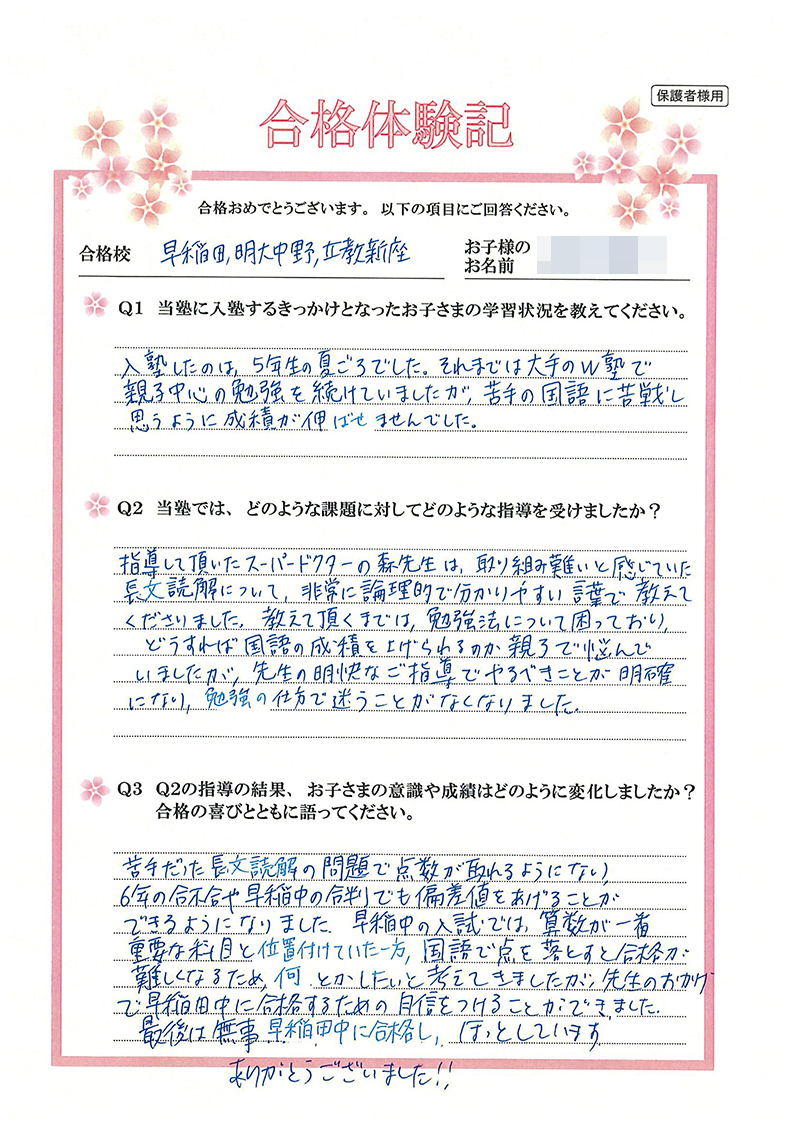 保護者様用
合格体験記
合格おめでとうございます。以下の項目にご回答ください。
合格校 早稲田,明大中野,立教新座
お子様の
お名前
Q1 当塾に入塾するきっかけとなったお子さまの学習状況を教えてください。
入塾したのは、5年生の夏ごろでした。それまでは大手のW塾で
親子中心の勉強を続けていましたが、苦手の国語に苦戦し
思うように成績が伸ばせませんでした。
Q2 当塾では、どのような課題に対してどのような指導を受けましたか？
指導して頂いたスーパードクターの森先生は、取り組み難いと感じていた
長文読解について、非常に論理的で分かりやすい言葉で教えて
くださりました。教えて頂くまでは、勉強法について困っており、
どうすれば国語の成績を上げられるのか親子で悩んで
いましたが、先生の明快なご指導でやるべきことが明確
になり、勉強の仕方で迷うことがなくなりました。
Q3 Q2の指導の結果、お子さまの意識や成績はどのように変化しましたか？
合格の喜びとともに語ってください。
苦手だった長文読解の問題で点数が取れるようになり、
6年の合不合や早稲中の合判でも偏差値をあげることが
できるようになりました。早稲中の入試では、算数が一番
重要な科目と位置付けていた一方、国語で点を落とすと合格が
難しくなるため、何とかしたいと考えてきましたが、先生のおかげ
で早稲田中に合格するための自信をつけることができました。
最後は無事早稲田中に合格し、ほっとしています
ありがとうございました!!